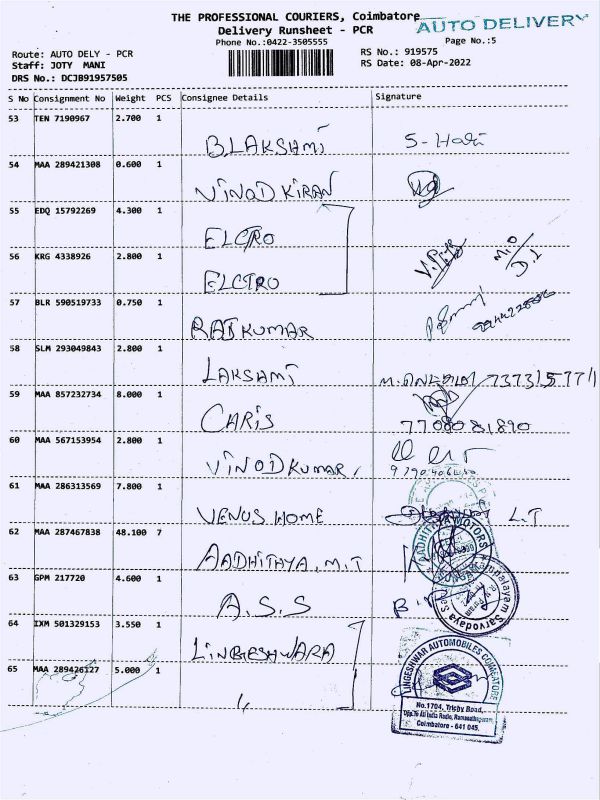 THE PROFESSIONAL COURIERS, Coimbatore
AUTO DELIVERY
Delivery Runsheet - PCR
Phone No.:0422-3505555
Page No.:5
Route: AUTO DELY - PCR
RS No.: 919575
Staff: JOTY MANI
RS Date: 08-Apr-2022
DRS No.: DCJB91957505
S No Consignment No Weight PCS Consignee Details Signature
53 TEN 7190967 2.700 1
B.LAKSHMI S-Hari
54 MAA 289421308 0.600 1
VINOD KIRAN
55 EDQ 15792269 4.300 1
ELCTRO
56 KRG 4338926 2.800 1
ELCTRO
57 BLR 590519733 0.750 1
RAJKUMAR
58 SLM 293049843 2.800 1
LAKSHMI
59 MAA 857232734 8.000 1
CARIS 7708081890
60 MAA 567153954 2.800 1
VINOD KUMAR,
61 MAA 286313569 7.800 1
VENUS HOME L.T
62 MAA 287467838 48.100 7
AADHITAYA.M.T
AADHITYA MOTORS
63 GPM 217720 4.600 1
A.S.S
Sarvodaya
64 IXM 501329153 3.550 1
LINGESHWARA
65 MAA 289426127 5.000 1
LINGESHWAR AUTOMOBILES COIMBATORE
No.1704, Trichy Road,
Opp.To All India Radio, Ramanathapuram,
Coimbatore - 641 045.